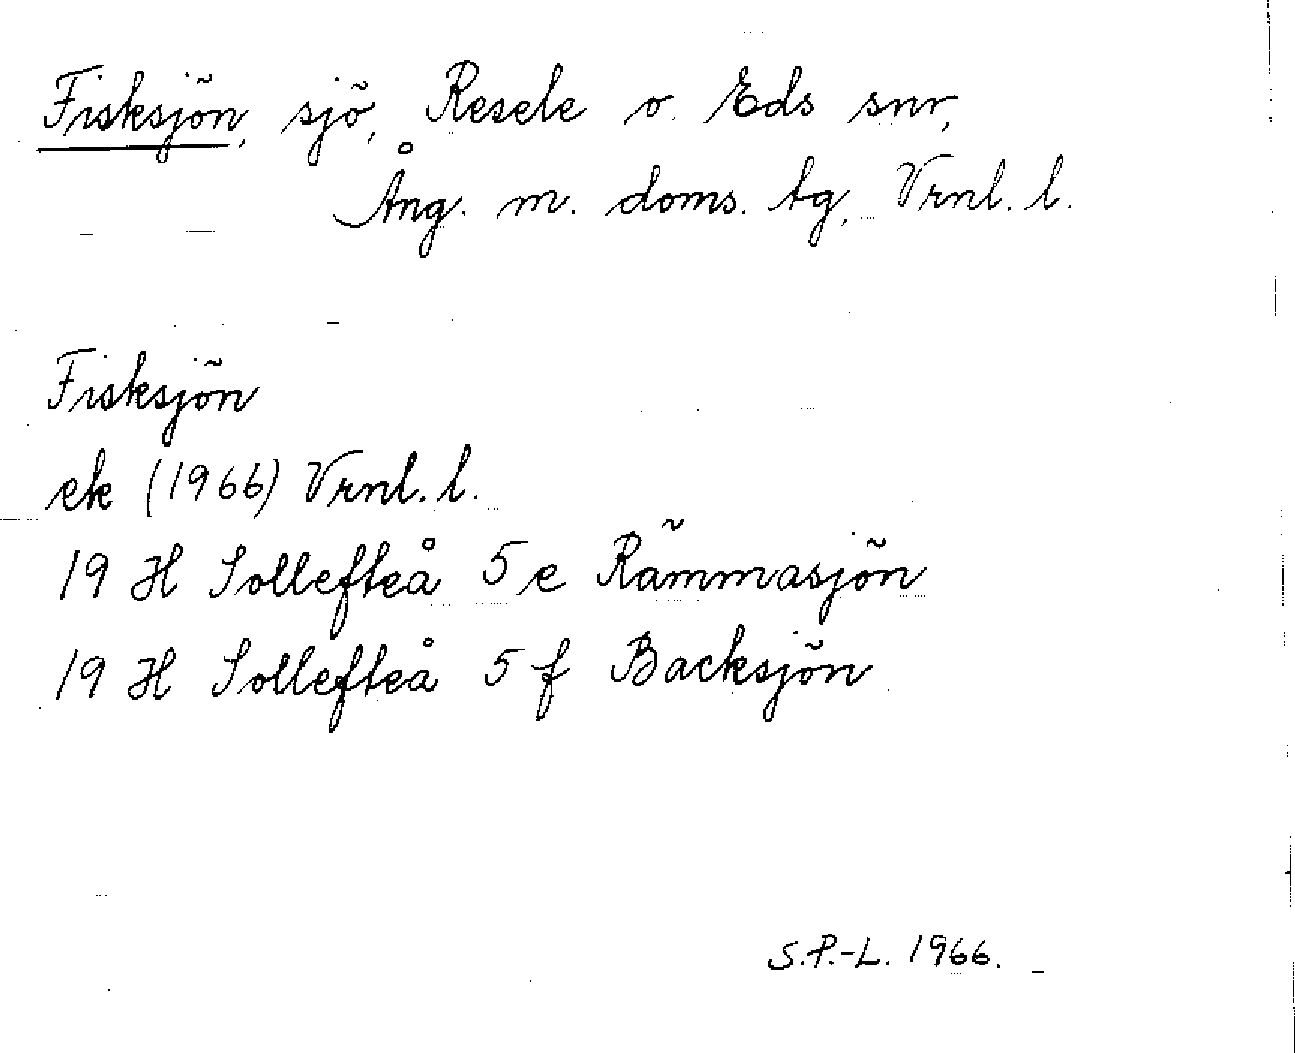 Fisksjön, sjö, Resele o. Eds snr,
Ång. m. doms. tg, Vrnl. l.
Fisksjön
ek (1966) Vrnl. l.
19 H Sollefteå 5 e Rämmasjön
19 H Sollefteå 5 f Backsjön
S.P.-L. 1966.